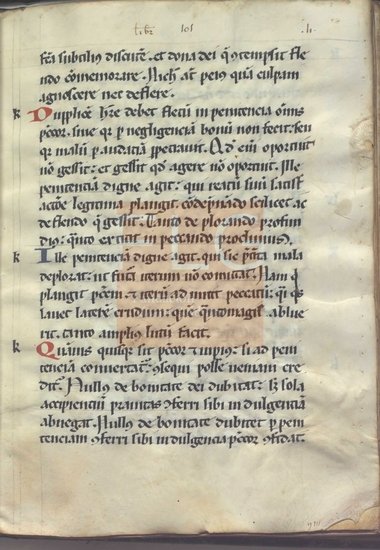 liber ıoı .ii.
fc̄a subtilius discutē. et dona dei q̄ ɔtempsit fle
ndo cōmemorare. Nich̄ at̄ peiꝰ quā culpam
agnoscere nec deflere.
k Dupplicē hr̄e debet fletū in penitencia om̄is
pc̄cor. siue qr̄ p̱ negligenciā bonū non fecit: seu
qr̄ malū p̱ audaciā ꝑpetrauit. Qd̄ eiū oportuit
nō gessit: et gessit qd̄ agere nō oportuit. Ille
penitenciā digne agit: qui reatū suū satisf
actōe legitima plangit. cōdempnādo scilicet ac
deflendo q̄ gessit: Tanto deplorando profun
diꝰ: quāto extitit in peccando procliuius.
k Ille penitēciā digne agit. qui sic p̄t̄ita mala
deplorat: ut futā iterum nō comittat. Nam q̄
plangit pc̄cm̄ et iterū admittit peccatū: q̄i qs̄
lauet laterē crudum: quē quātomagis ablue
rit. tanto amplius lutū facit.
k Quāuis quisqꝫ sit pc̄cor et impiꝰ: si ad peni
tenciā conuertat̄: ɔsequi posse ueniam cre
dit̄. Nullꝰ de bonitate dei dubitat: sꝫ sola
accipienciū prauitas ɔferri sibi indulgenciā
abnegat. Nullꝰ de bonitate dubitet p̱ peni
tenciam ɔferri sibi indulgenciā pc̄cor ɔfidat.